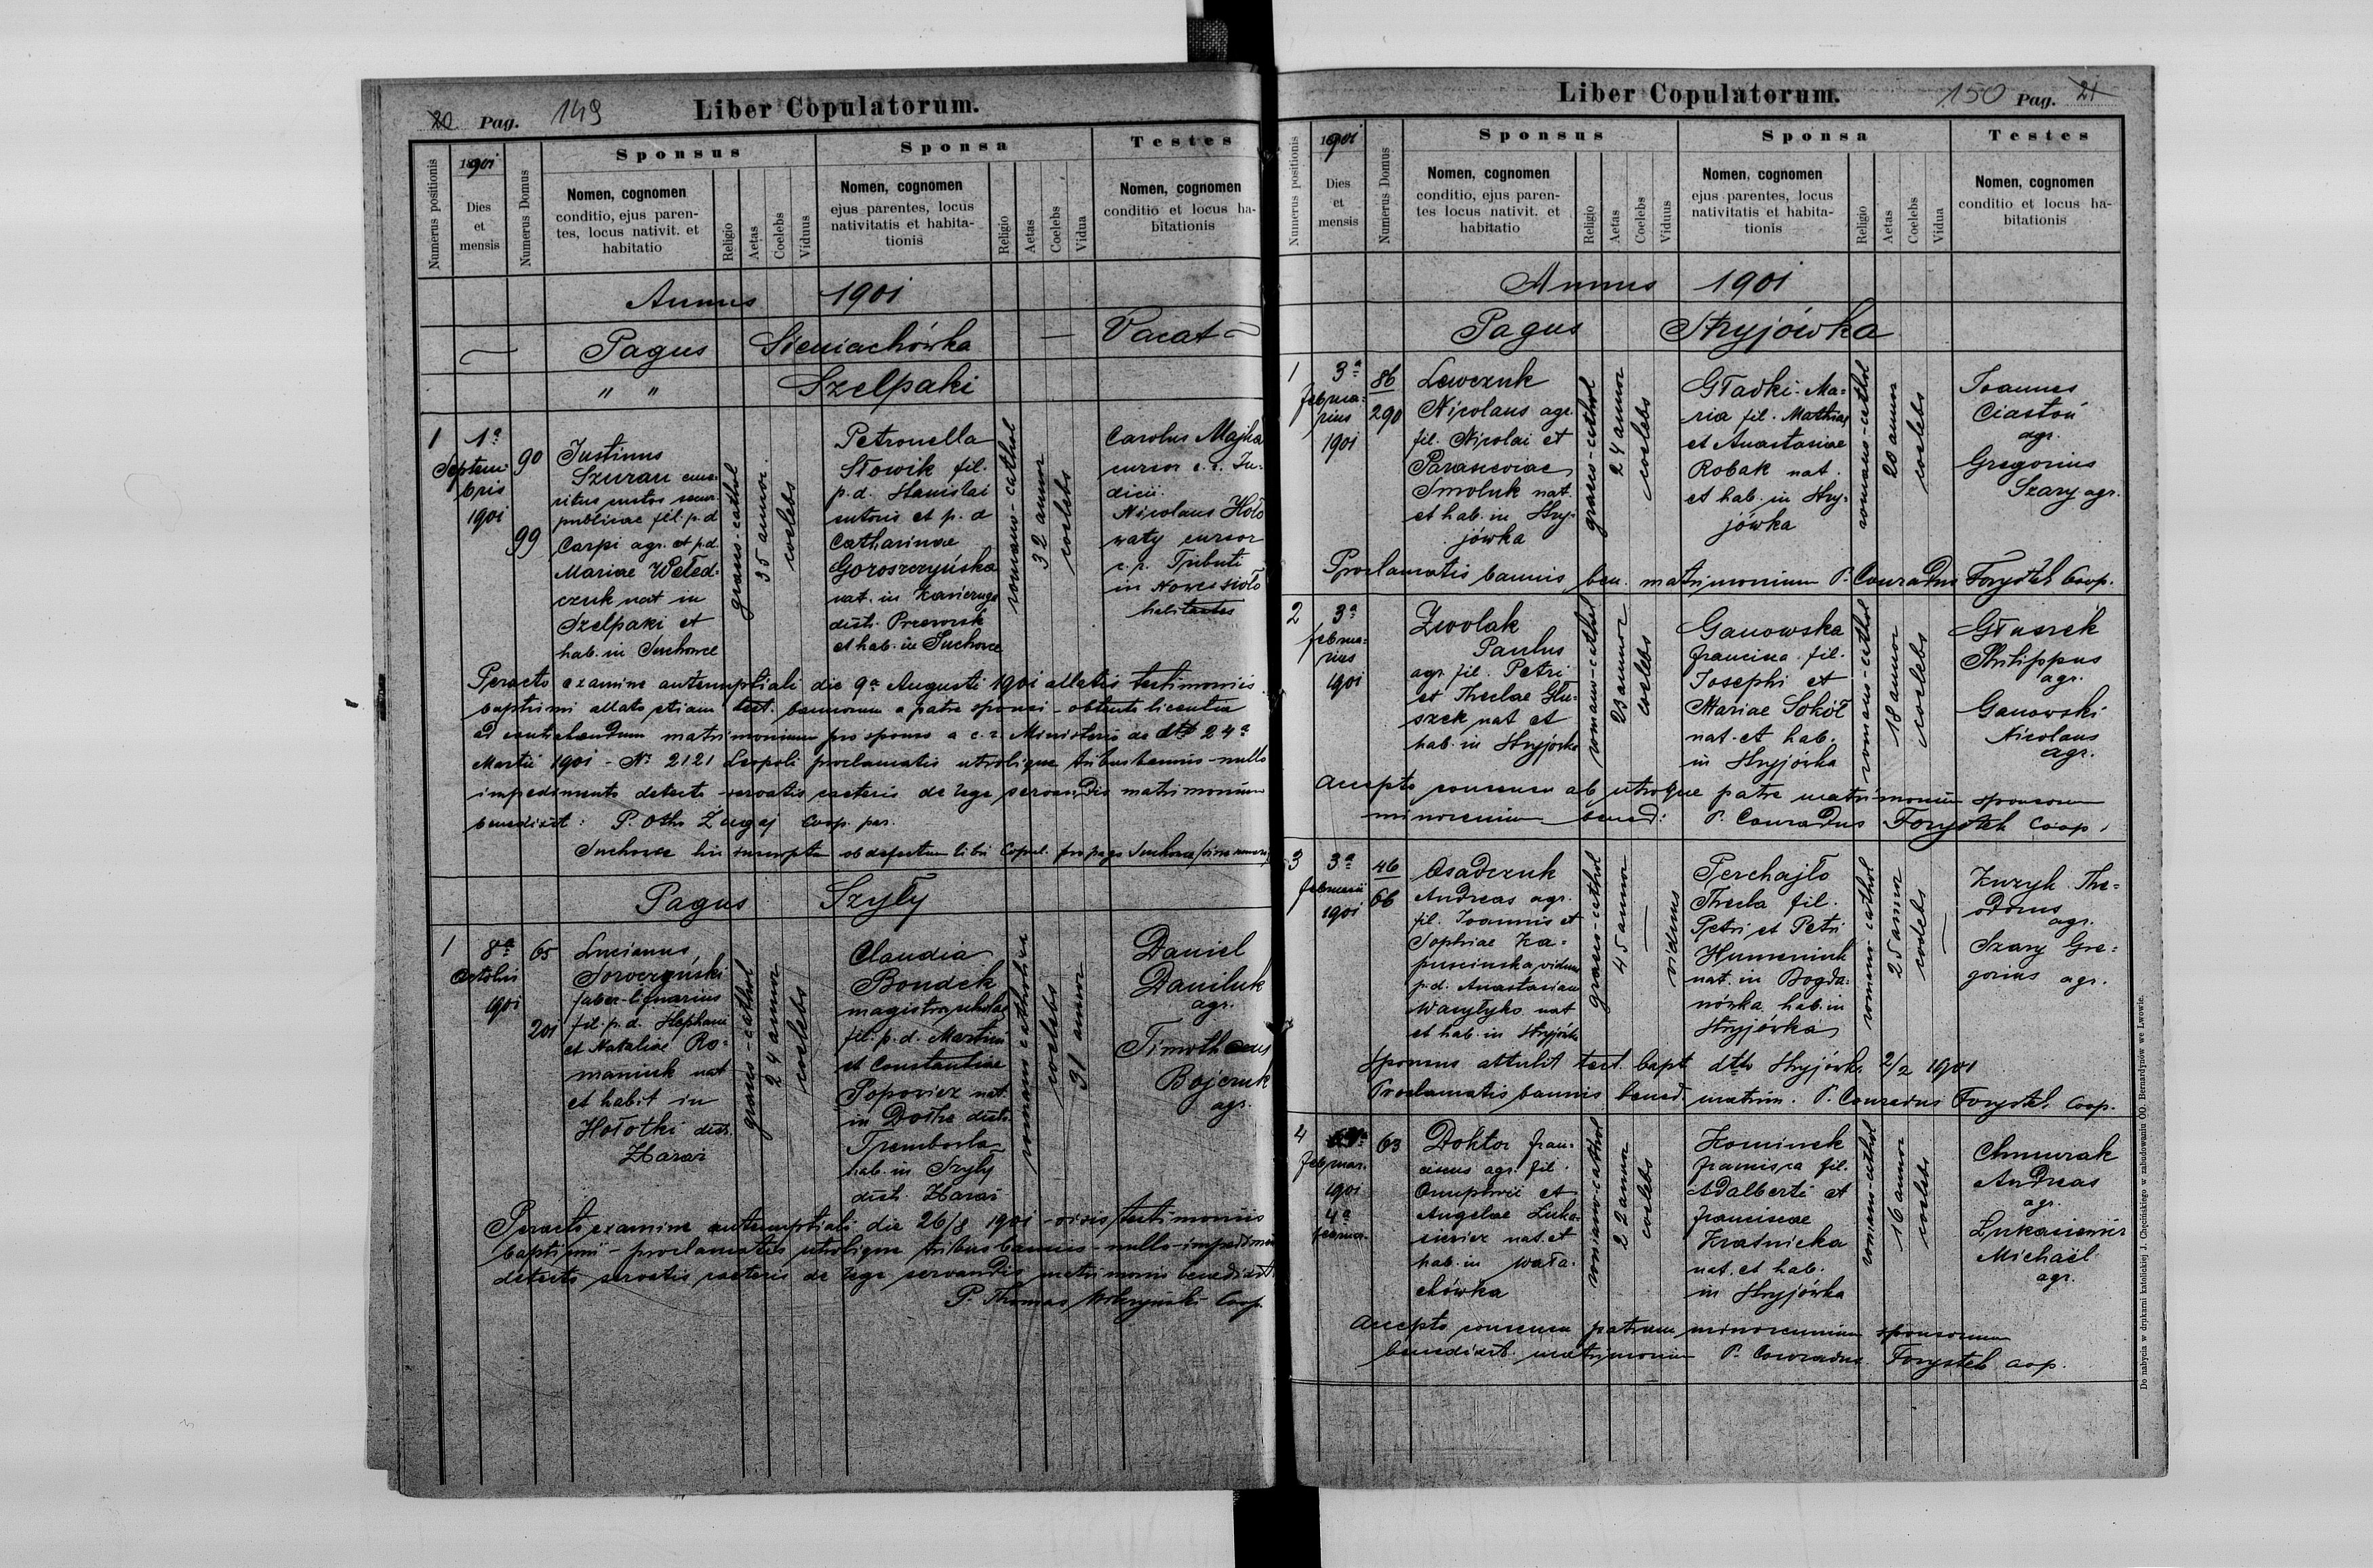 20 Pag. 149 Liber Copulatorum.
Numerus positionis
1901
Dies
et
mensis
Numerus Domus
Sponsus
Nomen, cognomen
conditio, ejus paren-
tes, locus nativit. et
habitatio
Religio
Aetas
Coelebs
Viduus
Sponsa
Nomen, cognomen
ejus parentes, locus
nativitatis et habita-
tionis
Religio
Aetas
Coelebs
Vidua
Testes
Nomen, cognomen
conditio et locus ha-
bitationis
Annus 1901
Pagus Sieniachówka — Vacat
" " Szelpaki
1
1ª
Septem-
bris
1901
90
99
Justinus
Szuran eme-
ritus custos secur.
publicae fil. p.d.
Carpi agr. et p.d.
Mariae Weled-
czuk nat in
Szelpaki et
hab. in Suchowce
graeco-cathol
35 annor.
coelebs
Petronella
Słowik fil.
p.d. Stanislai
sutoris et p. d
Catharinae
Goroszczyńska
nat. in
distr. Przeworsk
et hab. in Suchowce
romano-cathol
32 annor
coelebs
Carolus Majka
cursor c. r. Ju-
dicii.
Nicolaus Hoło
waty cursor
c. r. Tributi
in Nowesioło
habitantes
Peracto examine antenuptiali die 9ª Augusti 1901 allatis testimoniis
baptismi allato etiam test. bannorum a patre sponsi - obtenta licentia
ad contrahendum matrimonium pro sponso a c. r. Ministerio de dtto 24ª
Martii 1901 - Nº 2121 Leopoli proclamatis utrobique tribus bannis - nullo
impedimento detecto servatis caeteris de lege servandis matrimonium
benedixit: P. Otto Zugaj Coop. par.
Suchowce hic inscripta ob defectum libri Copul. pro pago Suchowce
Pagus Szyły
1
8ª
Octobris
1901
65
201
Lucianus
Soroczyński
faber-lignarius
fil. p.d. Stephani
et Nataliae Ro-
maniuk nat
et habit in
Hołotki distr.
Zbaraż
graeco-cathol
24 annor
coelebs
Claudia
Bondek
magistra scholae
fil. p.d. Martini
et Constantiae
Popovicz nat.
in distr.
Trembowla
hab. in Szyły
distr. Zbaraż
romano catholica
coelebs
31 annor
Daniel
Daniluk
agr.
Timotheus
Bojczuk
agr.
Peracto examine antenuptiali die 26/8 1901 - visis testimoniis
baptismi - proclamatis utrobique tribus bannis - nullo impedimen
detecto servatis caeteris de lege servandis matrimonio benedixit
P. Thomas Coop.
Liber Copulatorum. 150 Pag. 21
Numerus positionis
1901
Dies
et
mensis
Numerus Domus
Sponsus
Nomen, cognomen
conditio, ejus paren-
tes locus nativit. et
habitatio
Religio
Aetas
Coelebs
Viduus
Sponsa
Nomen, cognomen
ejus parentes, locus
nativitatis et habita-
tionis
Religio
Aetas
Coelebs
Vidua
Testes
Nomen, cognomen
conditio et locus ha-
bitationis
Annus 1901
Pagus Stryjówka
1
3ª
februa-
rius
1901
86
290
Lewczuk
Nicolaus agr.
fil. Nicolai et
Parasceviae
Smoluk nat.
et hab. in Stry-
jówka
graeco-cathol
24 annor
coelebs
Gładki Ma-
ria fil. Mathiae
et Anastasiae
Robak nat.
et hab. in Stry-
jówka
romano-cathol
20 annor
coelebs
Joannes
Ciastoń
agr.
Gregorius
Szary agr.
Proclamatis bannis ben. matrimonium P. Conradus Forystek Coop.
2
3ª
februa-
rius
1901
Zwolak
Paulus
agr. fil. Petri
et Theclae Głu-
szek nat et
hab. in Stryjówka
romano-cathol
23 annor
coelebs
Ganowska
francisca fil.
Josephi et
Mariae Sokół
nat. et hab.
in Stryjówka
romano-cathol
18 annor
coelebs
Głuszek
Philippus
agr.
Ganowski
Nicolaus
agr.
Accepto consensu ab utroque patre matrimonium sponsorum
minorenium bened: P. Conradus Forystek Coop.
3
3ª
februarii
1901
46
66
Osadczuk
Andreas agr.
fil. Joannis et
Sophiae Ka-
puscinska viduus
p.d. Anastasiae
Wasylyko nat
et hab. in Stryjówka
graeco-cathol
45 annor
viduus
Perchajło
Thecla fil.
Petri et Petri
Humeniuk
nat. in Bogda-
nówka hab. in
Stryjówka
romano-cathol
25 annor
coelebs
Kuzyk The-
odorus
agr.
Szary Gre-
gorius agr.
Sponsus attulit test. bapt dtto Stryjówka 2/2 1901
Proclamatis bannis bened. matrim. P. Conradus Forystek Coop.
4
februar.
1901
4ª
februar.
63
Doktor fran-
ciscus agr. fil.
Onuphrii et
Angelae Luka-
siewicz nat. et
hab. in Wała-
chówka
romano-cathol
22 annor
coelebs
Kominek
francisca fil.
Adalberti et
franciscae
Kraśnicka
nat. et hab.
in Stryjówka
romano-cathol
16 annor
coelebs
Chmurak
Andreas
agr.
Lukasiewicz
Michaël
agr.
Accepto consensu patrum minorennium sponsorum
benedixit matrimonium P. Conradus Forystek coop.
Do nabycia w drukarni katolickiej J. Chęcińskiego w zabudowaniu OO. Bernardynów we Lwowie.